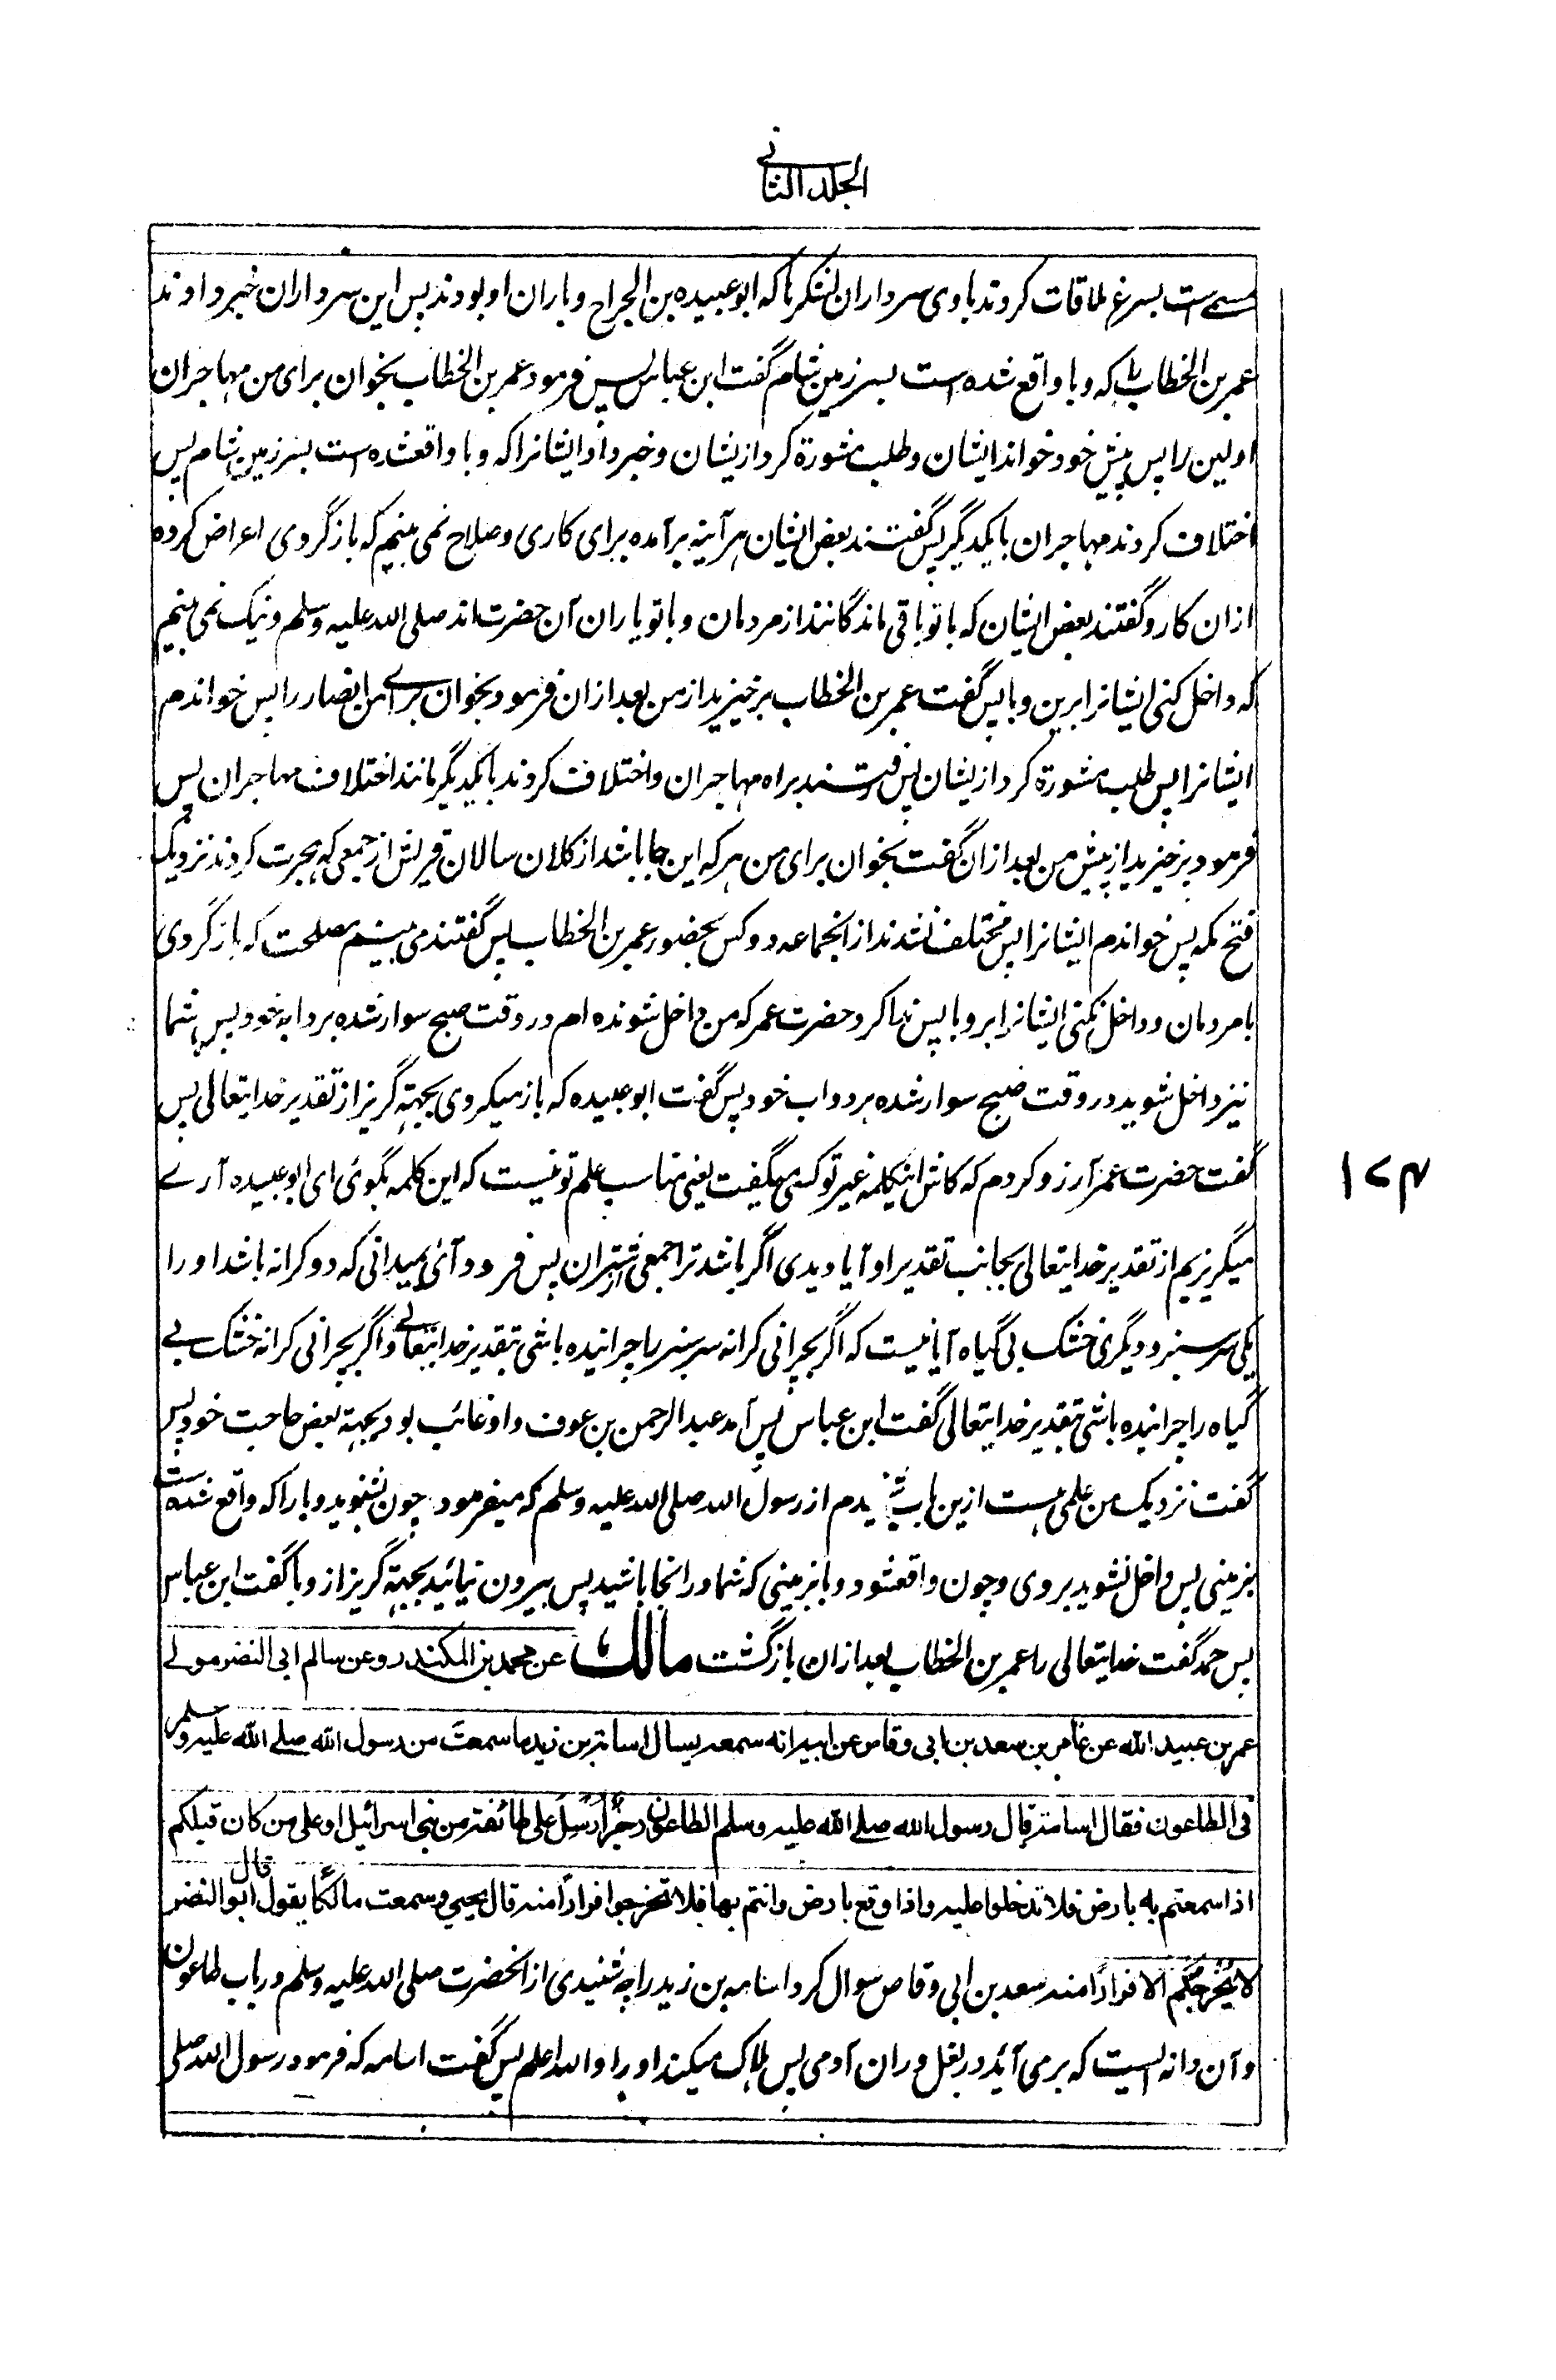 الجلد الثانی
مسمے است بسرغ ملاقات کردند با وی سرداران لشکرها که ابو عبیده بن الجراح و یاران او بودند پس این سرداران خبر دادند
عمر بن الخطاب را که وبا واقع شده است بسرزمین شام گفت ابن عباس پس فرمود عمر بن الخطاب بخوان برای من مهاجران
اولین را پس پیش خود خواند ایشان و طلب مشورة کرد ازیشان و خبر داد ایشانرا که وبا واقعشده است بسرزمین شام پس
اختلاف کردند مهاجران با یکدیگر پس گفتند بعض ایشان هر آینه برآمده برای کاری و صلاح نمی بینیم که بازگردی اعراض کرده
ازان کار و گفتند بعض ایشان که با تو باقی ماندگانند از مردمان و با تو یاران آن حضرت اند صلی الله علیه وسلم و نیک نمی بینیم
که داخل کنی ایشانرا برین وبا پس گفت عمر بن الخطاب برخیزید از من بعد ازان فرمود بخوان برای من انصار را پس خواندم
ایشانرا پس طلب مشورة کرد ازیشان پس رفتند براه مهاجران و اختلاف کردند با یکدیگر مانند اختلاف مهاجران پس
فرمود برخیزید از پیش من بعد ازان گفت بخوان برای من هر که این جا باشد از کلان سالان قریش از جمعی که هجرت کردند نزدیک
فتح مکه پس خواندم ایشانرا پس مختلف نشدند از انجماعه دو کس بحضور عمر بن الخطاب پس گفتند می بینیم مصلحت که باز گردی
با مردمان و داخل نکنی ایشانرا بر وبا پس ندا کرد حضرت عمر که من داخل شونده ام در وقت صبح سوار شده بر دابه خود پس شما
نیز داخل شوید در وقت صبح سوار شده بر دواب خود پس گفت ابو عبیده که باز میگردی بجهة گریز از تقدیر خدایتعالی پس
گفت حضرت عمر آرزو کردم که کاش اینکلمه غیر تو کسی میگفت یعنی مناسب علم تو نیست که این کلمه بگوئی ای ابو عبیده آرے
میگریزیم از تقدیر خدایتعالی بجانب تقدیر او آیا دیدی اگر باشد ترا جمعی از شتران پس فرود آئی بمیدانی که دو کرانه باشد او را
یکی سرسبز و دیگری خشک بی گیاه آیا نیست که اگر بچرانی کرانه سرسبز را چرانیده باشی بتقدیر خدایتعالے و اگر بچرانی کرانه خشک بے
گیاه را چرانیده باشی بتقدیر خدایتعالی گفت ابن عباس پس آمد عبد الرحمن بن عوف و او غائب بود بجهة بعض حاجت خود پس
گفت نزدیک من علمی هست ازین باب شنیدم از رسول الله صلی الله علیه وسلم که میفرمود چون بشنوید وبا را که واقع شده است
بزمینی پس داخل نشوید بروی و چون واقعشود وبا بزمینی که شما در انجا باشید پس بیرون نیائید بجهة گریز از وبا گفت ابن عباس
پس حمد گفت خدایتعالی را عمر بن الخطاب بعد ازان بازگشت مالك عن محمد بن المنکدر وعن سالم ابی النضر مولے
عمر بن عبید الله عن عامر بن سعد بن ابی وقاص عن ابیه انه سمعه یسال اسامة بن زید ما سمعت من رسول الله صلے الله علیه وسلم
فی الطاعون فقال اسامة قال رسول الله صلے الله علیه وسلم الطاعون رجز ارسل علی طائفة من بنی اسرائیل او علی من کان قبلکم
اذا سمعتم به بارض فلا تدخلوا علیه واذا وقع بارض وانتم بها فلا تخرجوا فرارا منه قال یحیی وسمعت مالکا یقول قال ابو النضر
لا یخرجکم الا فرارا منه سعد بن ابی وقاص سوال کرد اسامه بن زید را چه شنیدی از انحضرت صلی الله علیه وسلم در باب طاعون
و آن دانه ایست که بر می آید در بغل و ران آدمی پس هلاک میکند او را والله اعلم پس گفت اسامه که فرمود رسول الله صلی
۱۷۴